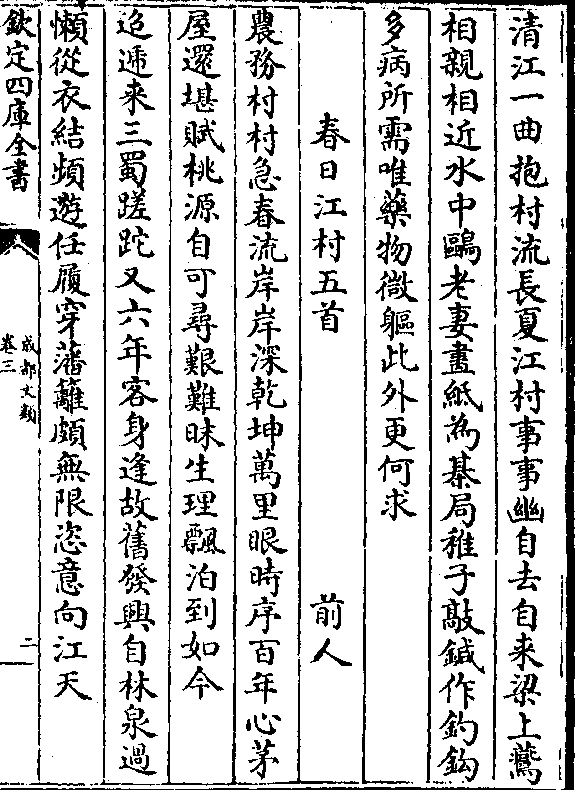 清江一曲抱村流長夏江村事事幽自去自来梁上鷰
相親相近水中鷗老妻畫紙為棊局稚子敲鍼作釣鈎
多病所需唯藥物微軀此外更何求
春日江村五首　前人
農務村村急春流岸岸深乾坤萬里眼時序百年心茅
屋還堪賦桃源自可尋艱難昧生理飄泊到如今
迢遞来三蜀蹉跎又六年客身逢故舊發興自林泉過
懶從衣結頻遊任履穿藩籬頗無限恣意向江天
欽定四庫全書
成都文類
卷三
二